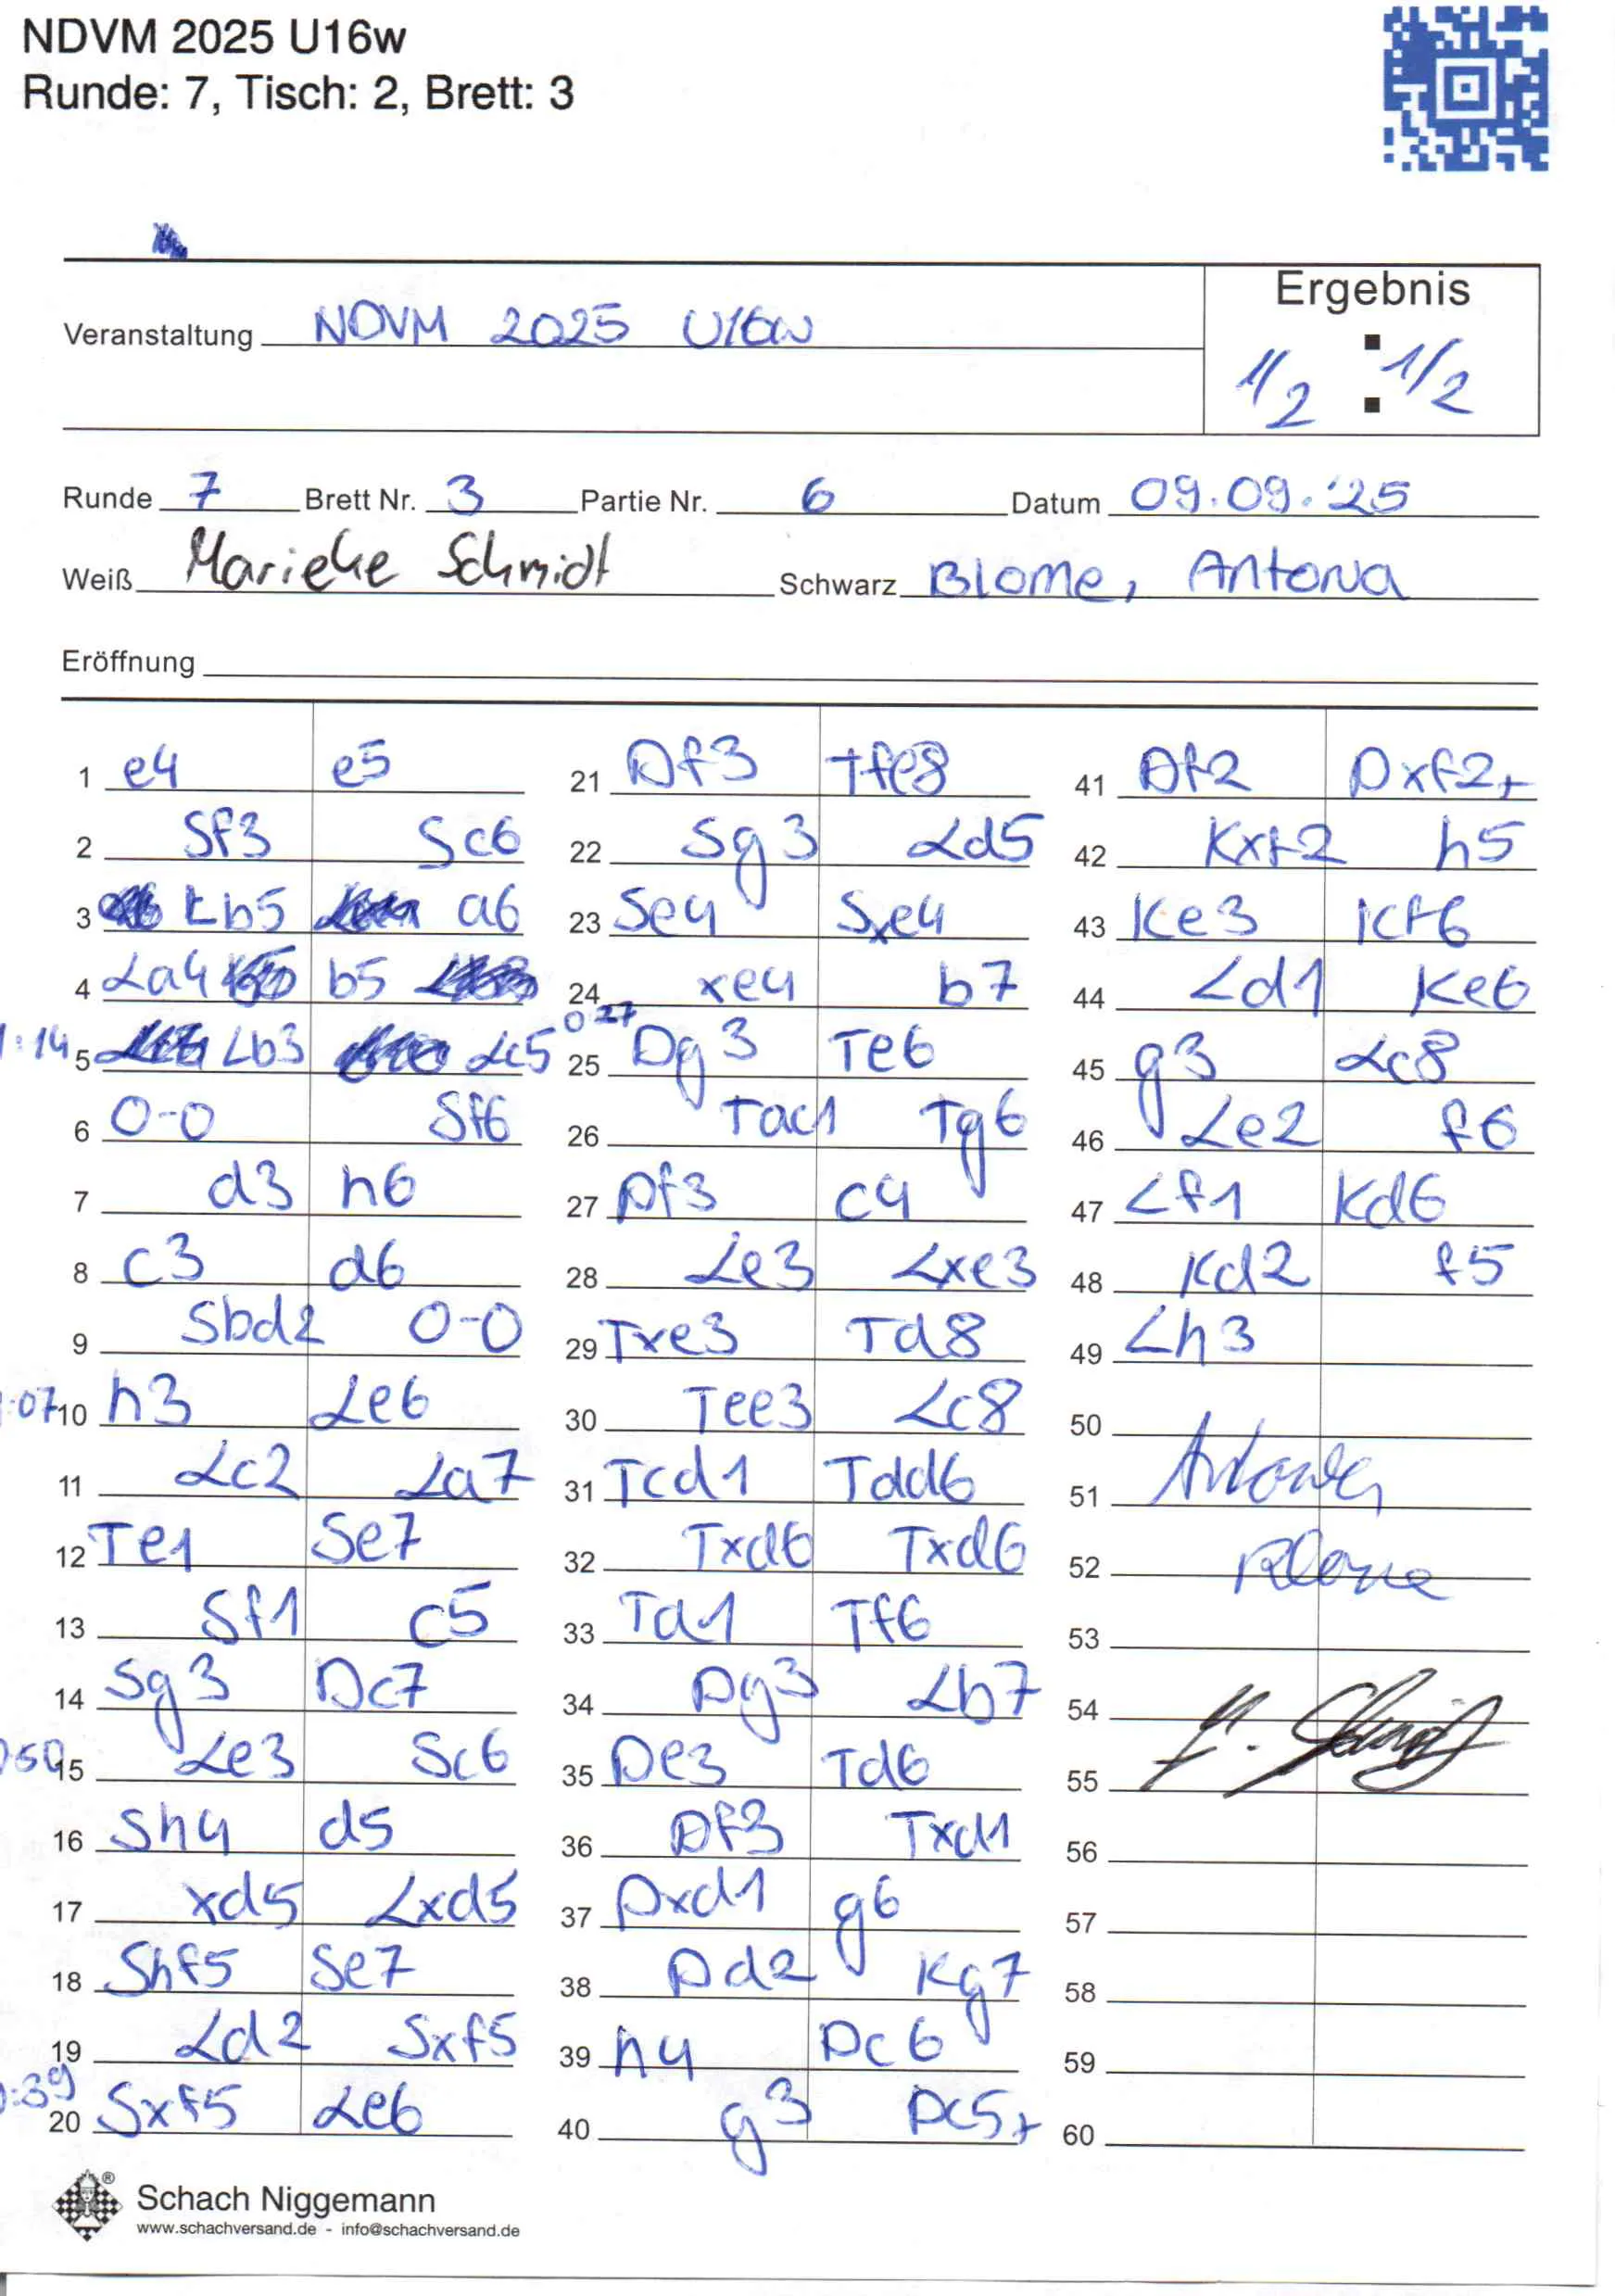 NDVM 2025 U16w
Runde: 7, Tisch: 2, Brett: 3
Ergebnis
Veranstaltung NDVM 2025 U16w
1/2 : 1/2
Runde 7 Brett Nr. 3 Partie Nr. 6 Datum 09.09.'25
Weiß Marieke Schmidt Schwarz Blome, Antonia
Eröffnung
1 e4 e5
2 Sf3 Sc6
3 Lb5 a6
4 La4 b5
1:14 5 Lb3 Lc5
6 0-0 Sf6
7 d3 h6
8 c3 d6
9 Sbd2 0-0
:07 10 h3 Le6
11 Lc2 La7
12 Te1 Se7
13 Sf1 c5
14 Sg3 Dc7
15 Le3 Sc6
16 Sh4 d5
17 xd5 Lxd5
18 Shf5 Se7
19 Ld2 Sxf5
:39
20 Sxf5 Le6
21 Df3 Tfe8
22 Sg3 Ld5
23 Se4 Sxe4
24 xe4 b7
0:27
25 Dg3 Te6
26 Tac1 Tg6
27 Df3 c4
28 Le3 Lxe3
29 Txe3 Td8
30 Tee3 Lc8
31 Tcd1 Tdd6
32 Txd6 Txd6
33 Td1 Tf6
34 Dg3 Lb7
35 De3 Td6
36 Df3 Txd1
37 Dxd1 g6
38 Dd2 Kg7
39 h4 Dc6
40 g3 Dc5+
41 Df2 Dxf2+
42 Kxf2 h5
43 Ke3 Kf6
44 Ld1 Ke6
45 g3 Lc8
46 Le2 f6
47 Lf1 Kd6
48 Kd2 f5
49 Lh3
50
51 Antonia
52 Blome
53
54 M. Schmidt
55
56
57
58
59
60
®
Schach Niggemann
www.schachversand.de - info@schachversand.de